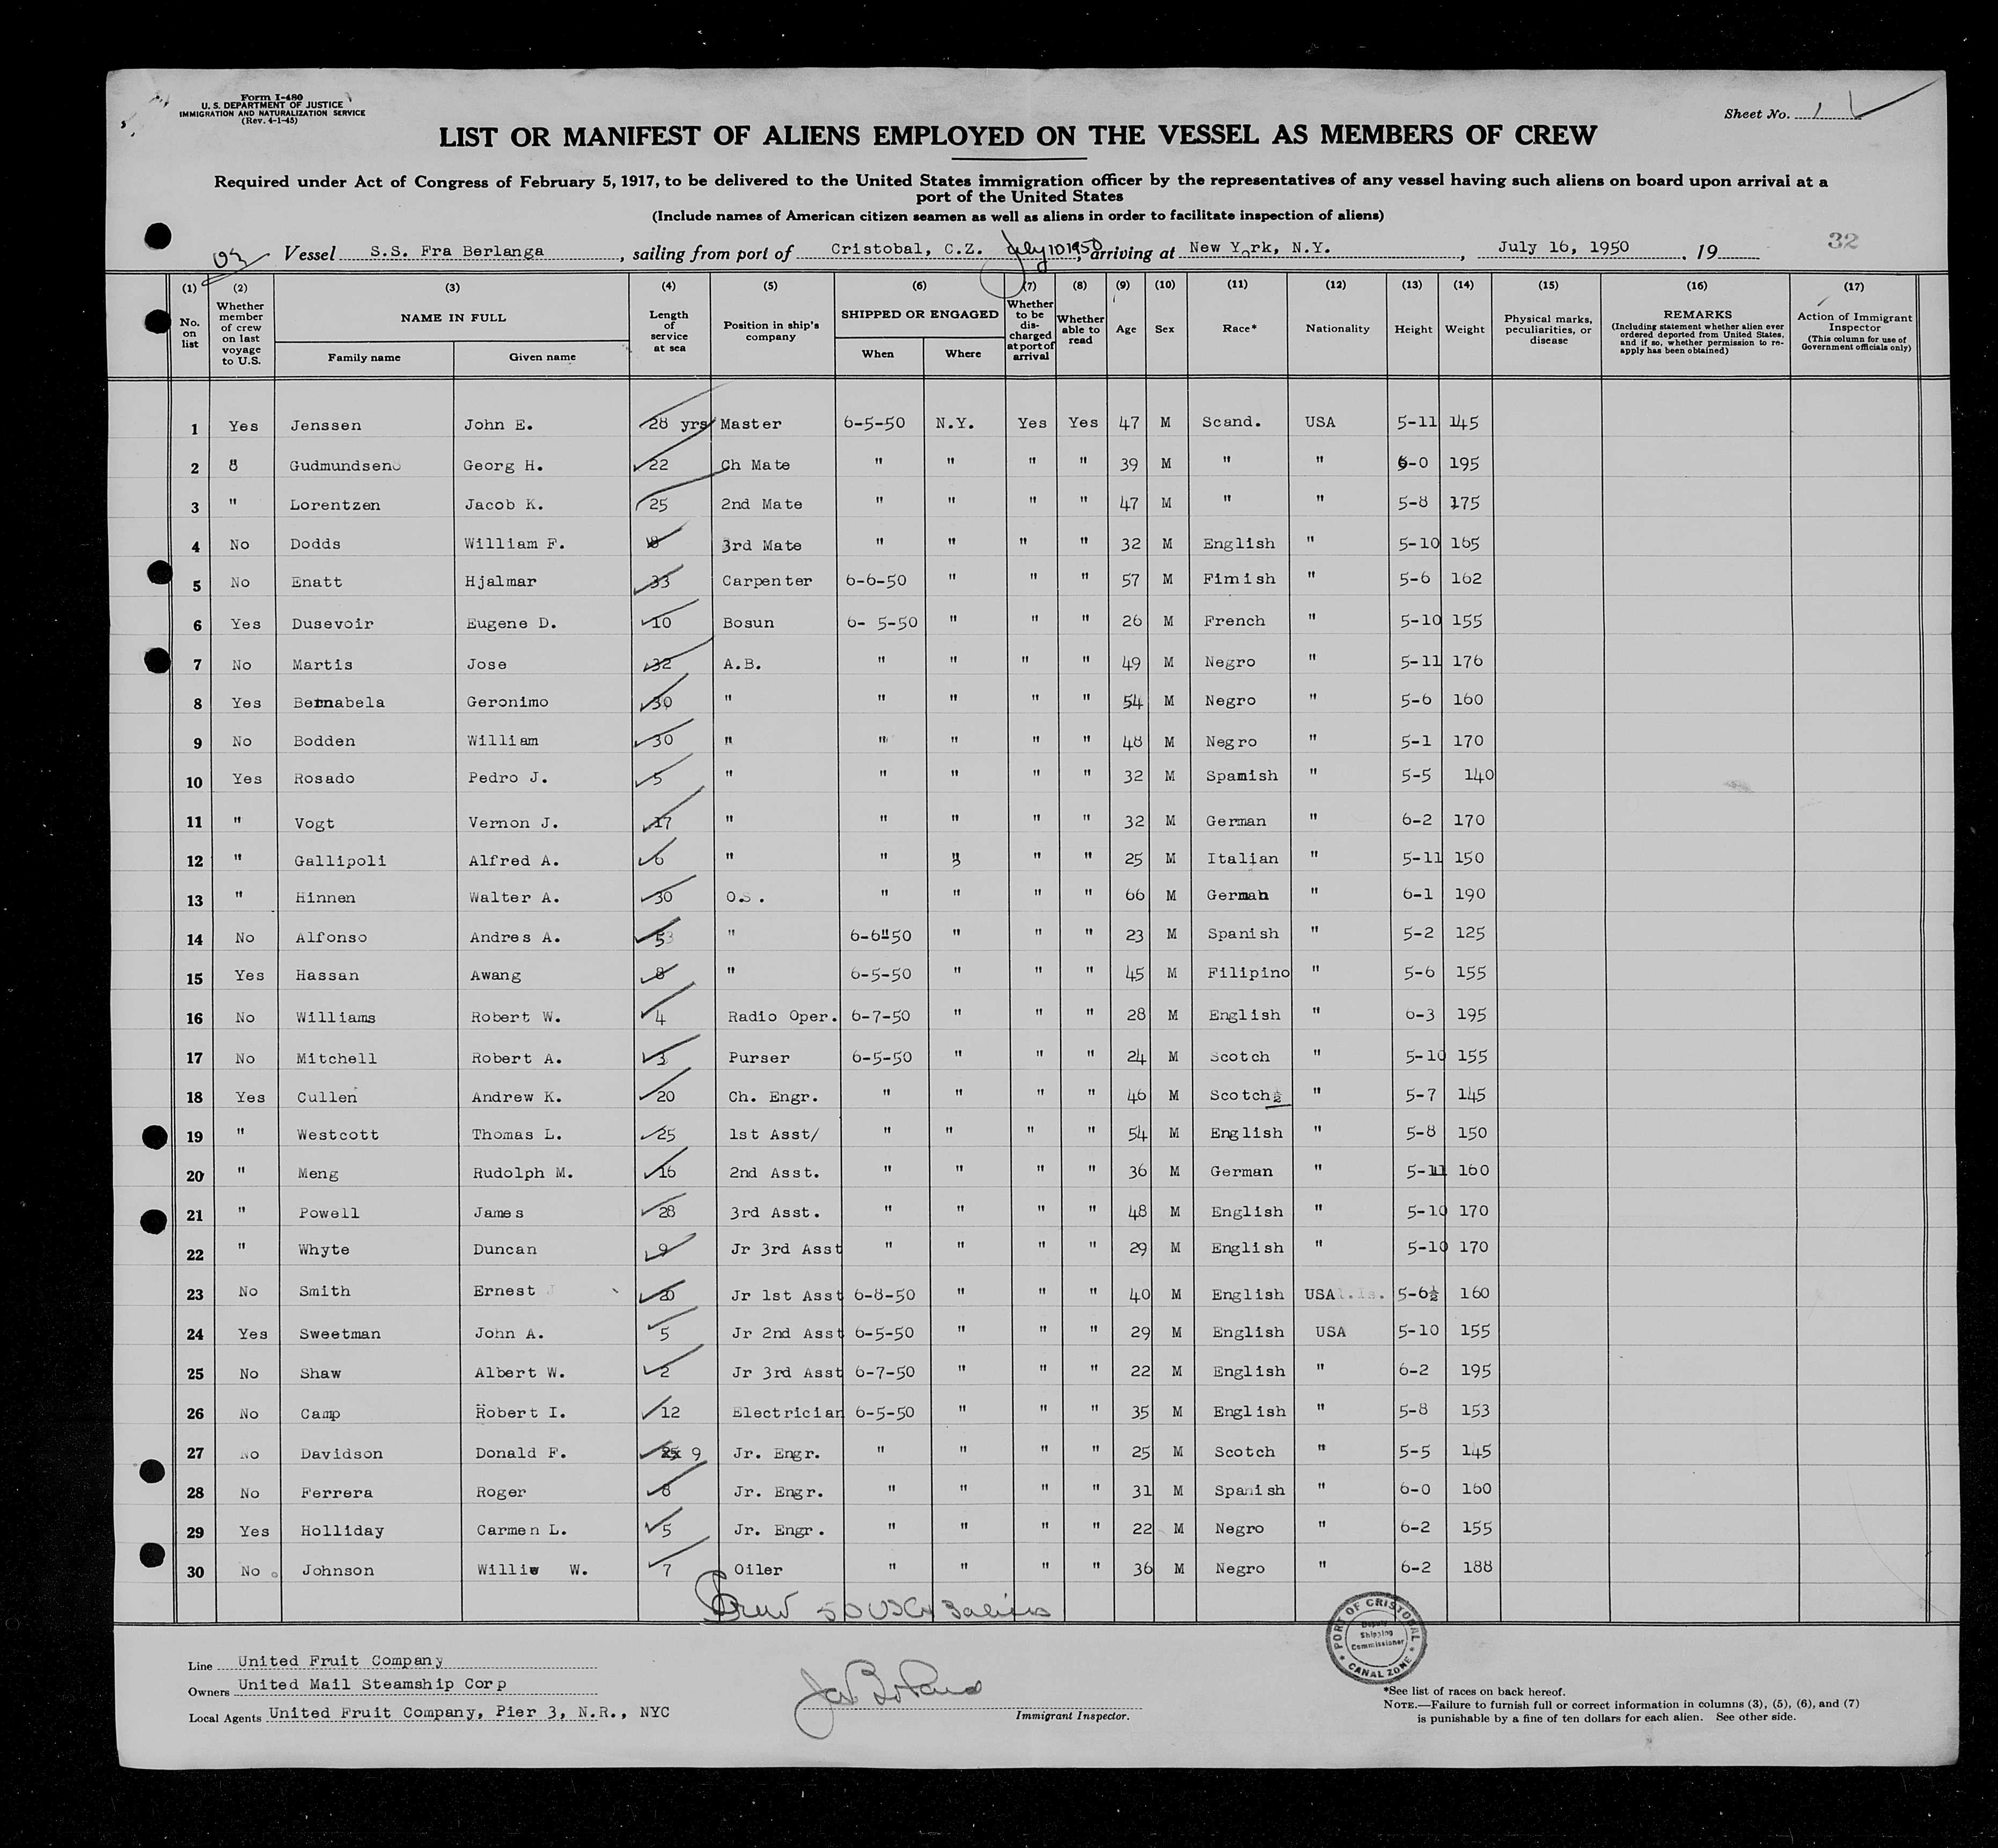 Form I-480
U. S. DEPARTMENT OF JUSTICE
IMMIGRATION AND NATURALIZATION SERVICE
(Rev. 4-1-45)
Sheet No. 1
LIST OR MANIFEST OF ALIENS EMPLOYED ON THE VESSEL AS MEMBERS OF CREW
Required under Act of Congress of February 5, 1917, to be delivered to the United States immigration officer by the representatives of any vessel having such aliens on board upon arrival at a
port of the United States
(Include names of American citizen seamen as well as aliens in order to facilitate inspection of aliens)
Vessel S.S. Fra Berlanga, sailing from port of Cristobal, C.Z. July 10 1950, arriving at New York, N.Y., July 16, 1950, 19 32
(1) No. on list (2) Whether member of crew on last voyage to U.S. (3) NAME IN FULL Family name Given name (4) Length of service at sea (5) Position in ship's company (6) SHIPPED OR ENGAGED When Where (7) Whether to be discharged at port of arrival (8) Whether able to read (9) Age (10) Sex (11) Race* (12) Nationality (13) Height (14) Weight (15) Physical marks, peculiarities, or disease (16) REMARKS (Including statement whether alien ever ordered deported from United States, and if so, whether permission to re-apply has been obtained) (17) Action of Immigrant Inspector (This column for use of Government officials only)
1 Yes Jenssen John E. 28 yrs Master 6-5-50 N.Y. Yes Yes 47 M Scand. USA 5-11 145
2 " Gudmundsen Georg H. 22 Ch Mate " " " " 39 M " " 6-0 195
3 " Lorentzen Jacob K. 25 2nd Mate " " " " 47 M " " 5-8 175
4 No Dodds William F. 8 3rd Mate " " " " 32 M English " 5-10 165
5 No Enatt Hjalmar 33 Carpenter 6-6-50 " " " 57 M Fimish " 5-6 162
6 Yes Dusevoir Eugene D. 10 Bosun 6- 5-50 " " " 26 M French " 5-10 155
7 No Martis Jose 32 A.B. " " " " 49 M Negro " 5-11 176
8 Yes Bernabela Geronimo 30 " " " " " 54 M Negro " 5-6 160
9 No Bodden William 30 " " " " " 48 M Negro " 5-1 170
10 Yes Rosado Pedro J. 5 " " " " " 32 M Spanish " 5-5 140
11 " Vogt Vernon J. 17 " " " " " 32 M German " 6-2 170
12 " Gallipoli Alfred A. 6 " " " " " 25 M Italian " 5-11 150
13 " Hinnen Walter A. 30 O.S. " " " " 66 M German " 6-1 190
14 No Alfonso Andres A. 5 " 6-6-50 " " " 23 M Spanish " 5-2 125
15 Yes Hassan Awang 8 " 6-5-50 " " " 45 M Filipino " 5-6 155
16 No Williams Robert W. 4 Radio Oper. 6-7-50 " " " 28 M English " 6-3 195
17 No Mitchell Robert A. 3 Purser 6-5-50 " " " 24 M Scotch " 5-10 155
18 Yes Cullen Andrew K. 20 Ch. Engr. " " " " 46 M Scotch " 5-7 145
19 " Westcott Thomas L. 25 1st Asst/ " " " " 54 M English " 5-8 150
20 " Meng Rudolph M. 16 2nd Asst. " " " " 36 M German " 5-11 160
21 " Powell James 28 3rd Asst. " " " " 48 M English " 5-10 170
22 " Whyte Duncan 9 Jr 3rd Asst " " " " 29 M English " 5-10 170
23 No Smith Ernest 20 Jr 1st Asst 6-8-50 " " " 40 M English USA 5-6½ 160
24 Yes Sweetman John A. 5 Jr 2nd Asst 6-5-50 " " " 29 M English USA 5-10 155
25 No Shaw Albert W. 2 Jr 3rd Asst 6-7-50 " " " 22 M English " 6-2 195
26 No Camp Robert I. 12 Electrician 6-5-50 " " " 35 M English " 5-8 153
27 No Davidson Donald F. 9 Jr. Engr. " " " " 25 M Scotch " 5-5 145
28 No Ferrera Roger 8 Jr. Engr. " " " " 31 M Spanish " 6-0 160
29 Yes Holliday Carmen L. 5 Jr. Engr. " " " " 22 M Negro " 6-2 155
30 No Johnson Willie W. 7 Oiler " " " " 36 M Negro " 6-2 188
Crew 50 USC 3 aliens
PORT OF CRISTOBAL
Deputy Shipping Commissioner
CANAL ZONE
Line United Fruit Company
Owners United Mail Steamship Corp
Local Agents United Fruit Company, Pier 3, N.R., NYC
Immigrant Inspector.
*See list of races on back hereof.
NOTE.—Failure to furnish full or correct information in columns (3), (5), (6), and (7)
is punishable by a fine of ten dollars for each alien. See other side.